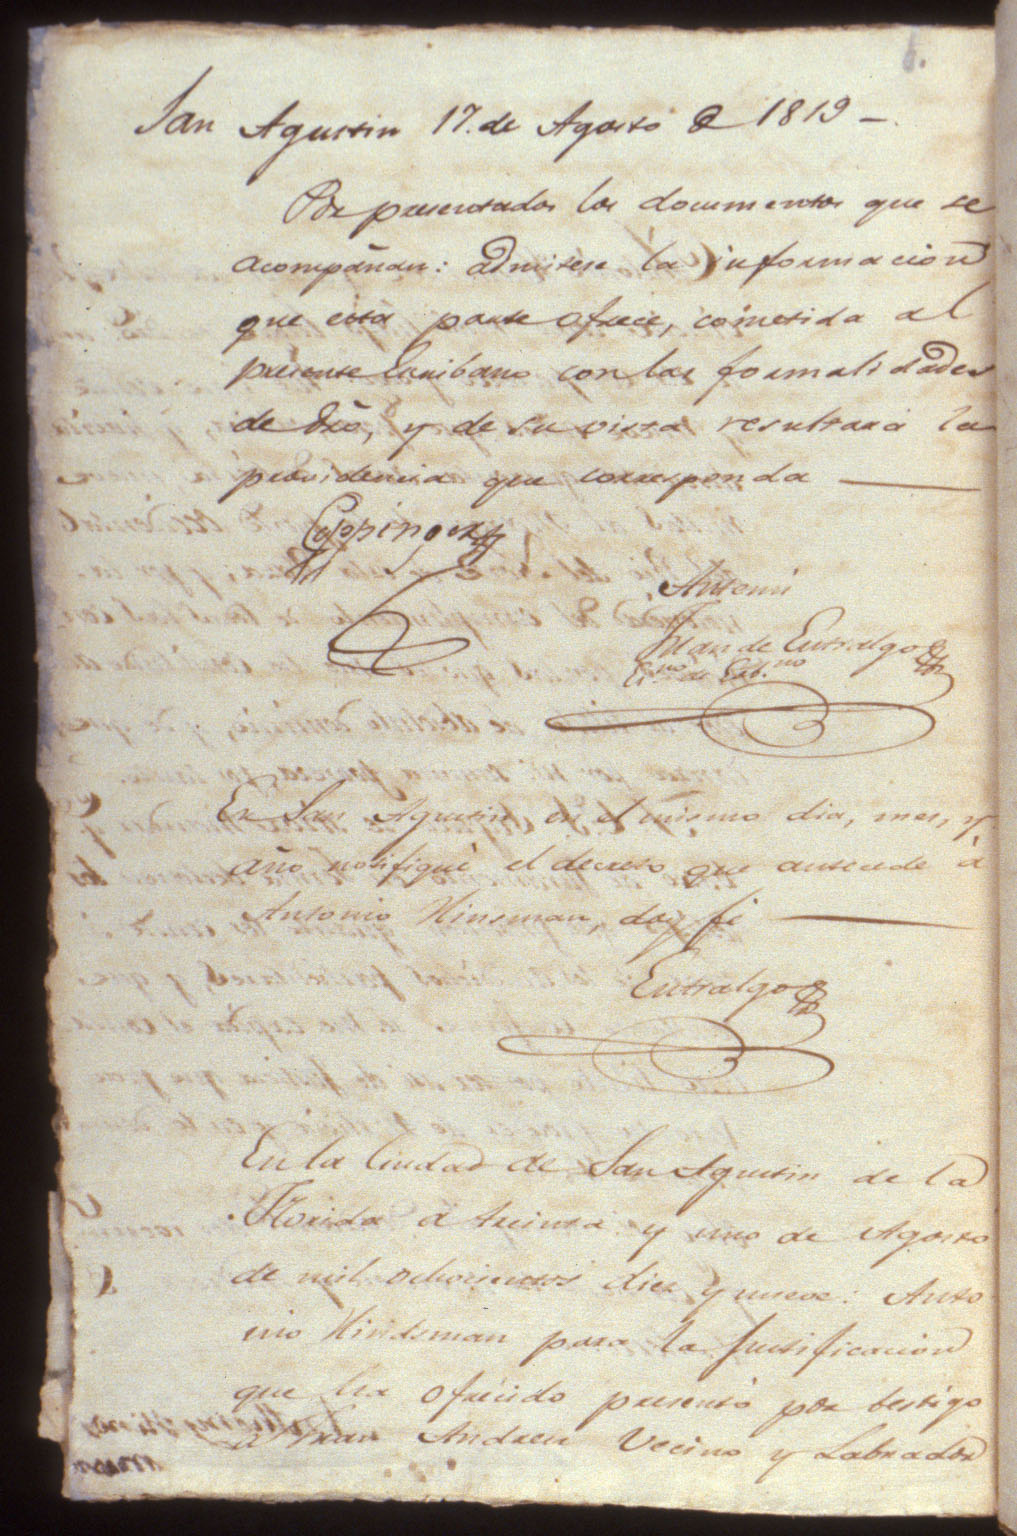 6.
San Agustin 17. de Agosto de 1819 —.
Por presentados los documentos que se
acompañan: admitese la informacion
que esta parte ofrece, cometida al
presente Escribano con las formalidades
de dro, y de su vista resultará la
providencia que corresponda —
Coppinger
Antemi
Juan de Entralgo
Esno de Gobno
En San Agustin en el mismo dia, mes, y
año notifiqué el decreto que antecede á
Antonio Hinsman, doy fé —
Entralgo
En la Ciudad de San Agustin de la
Florida a treinta y uno de Agosto
de mil ochocientos diez y nueve: Anto
nio Hindsman para la justificacion
que ha ofrecido presentó por testigo
a Juan Andreu Vecino y Labrador